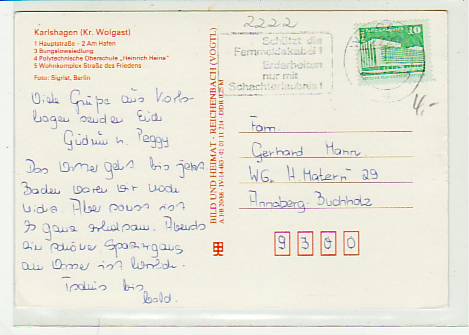 Karlshagen (Kr. Wolgast)
1 Hauptstraße - 2 Am Hafen
3 Bungalowsiedlung
4 Polytechnische Oberschule „Heinrich Heine"
5 Wohnkomplex Straße des Friedens
Foto: Sigrist, Berlin
Viele Grüße aus Karls-
hagen senden Euch
Gudrun u. Peggy
Das Wetter geht bis jetzt.
Baden waren wir noch
nicht. Aber sonst ist
es ganz erholsam. Abends
ein schöner Spaziergang
am Wasser ist herrlich.
Tschüs bis
bald.
BILD UND HEIMAT · REICHENBACH (VOGTL)
2222
Schützt die
Fernmeldekabel!
Erdarbeiten
nur mit
Schachterlaubnis!
10
4,-
Fam.
Gerhard Mann
WG. H. Matern 29
Annaberg-Buchholz
9300